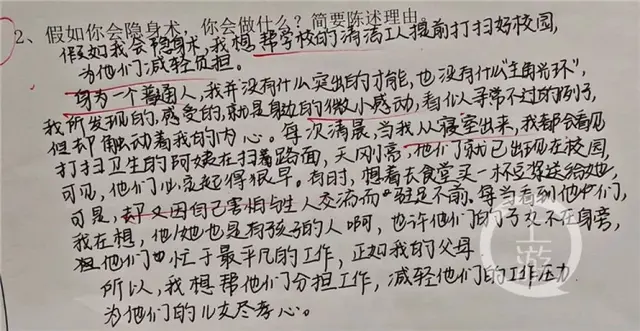 2、假如你会隐身术，你会做什么？简要陈述理由
假如我会隐身术，我想帮学校的清洁工人提前打扫好校园，
为他们减轻负担。
身为一个普通人，我并没有什么突出的才能，也没有什么“主角光环”，
我所发现的，感受的，就是身边的微小感动，看似寻常不过的例子，
但却触动着我的内心。每次清晨，当我从寝室出来，我都会看见
打扫卫生的阿姨在扫着路面，天刚亮，他们就已出现在校园，
可见，他们必定起得很早。有时，想着去食堂买一杯豆浆送给她，
可是，却又因自己害怕与生人交流而驻足不前。每当看到他们，
我在想，他/她也是有孩子的人啊，也许他们的子女不在身旁，
但他们忙于最平凡的工作，正如我的父母
所以，我想帮他们分担工作，减轻他们的工作压力
为他们的儿女尽孝心。
上游